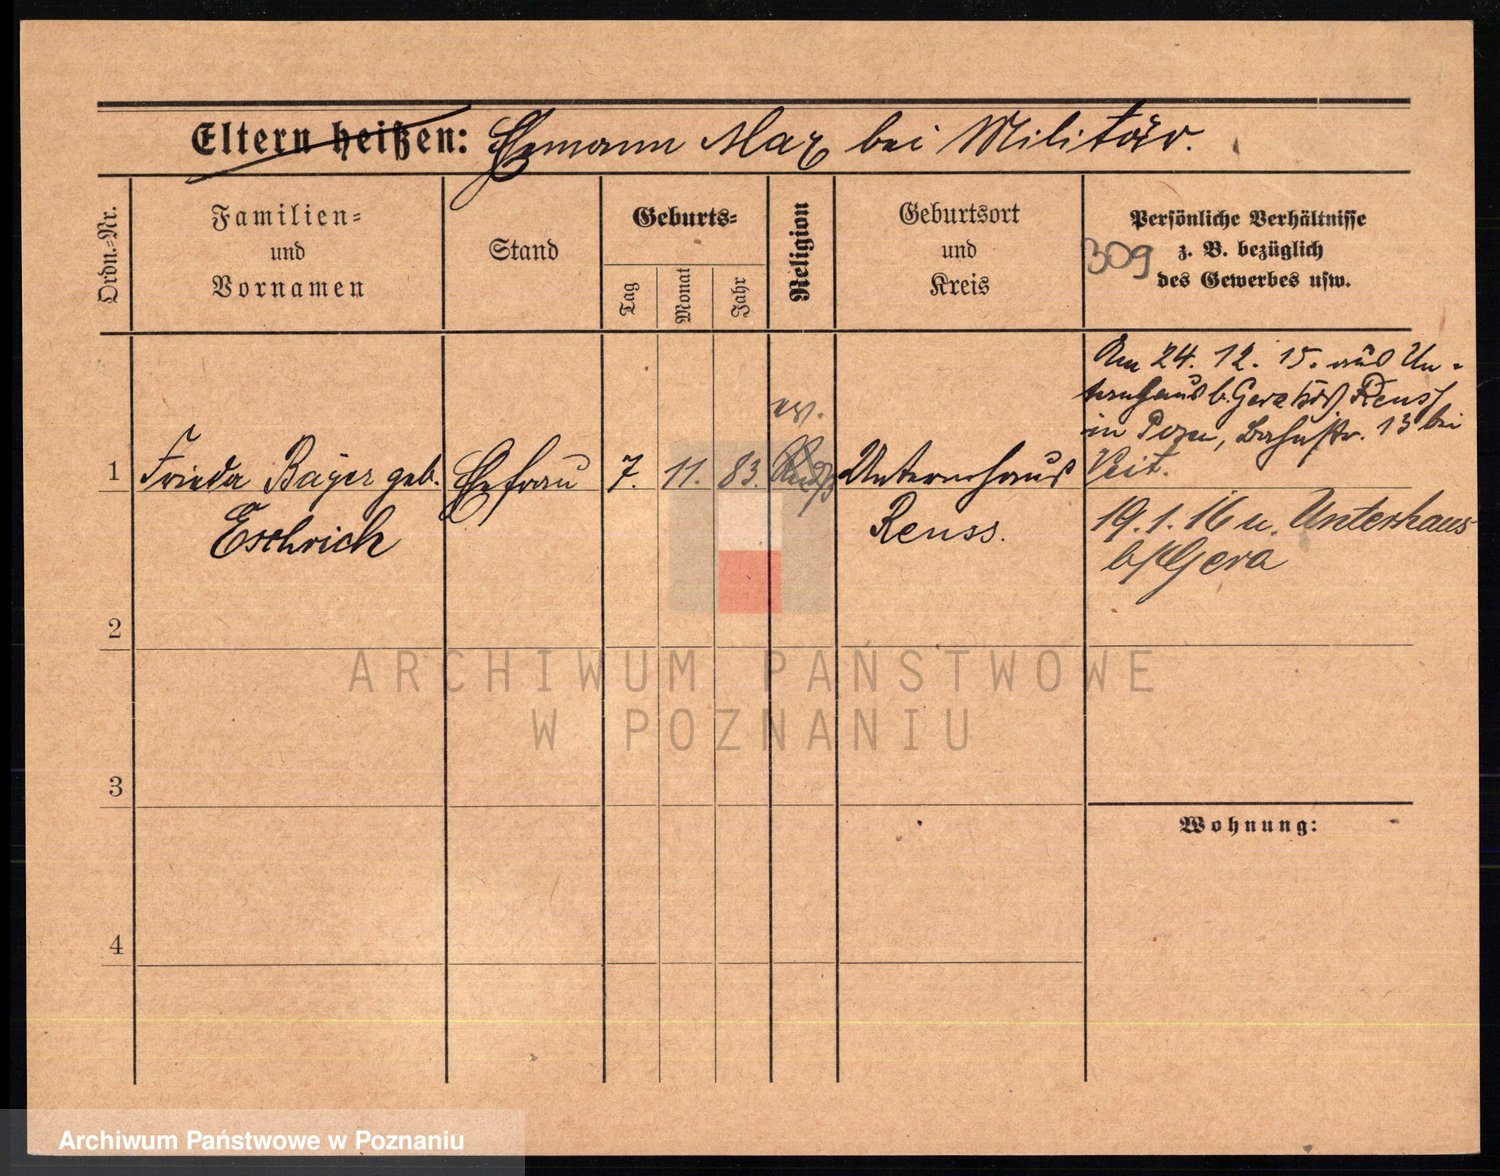 Eltern heißen: Ehemann Max bei Militär.
Ordn.-Nr.
Familien-
und
Vornamen
Stand
Geburts-
Tag
Monat
Jahr
Religion
Geburtsort
und
Kreis
Persönliche Verhältnisse
z. B. bezüglich
des Gewerbes usw.
309
Am 24. 12. 15. aus Un-
termhaus b. Gera Reuss
in Posen, 13 bei
Veit.
ev.
1 Frieda Bayer geb. Ehefrau 7. 11. 83. Untermhaus
Eschrich Reuss.
19.1.16 n. Untermhaus
b/Gera
2
3
4
Wohnung:
ARCHIWUM PAŃSTWOWE
W POZNANIU
Archiwum Państwowe w Poznaniu